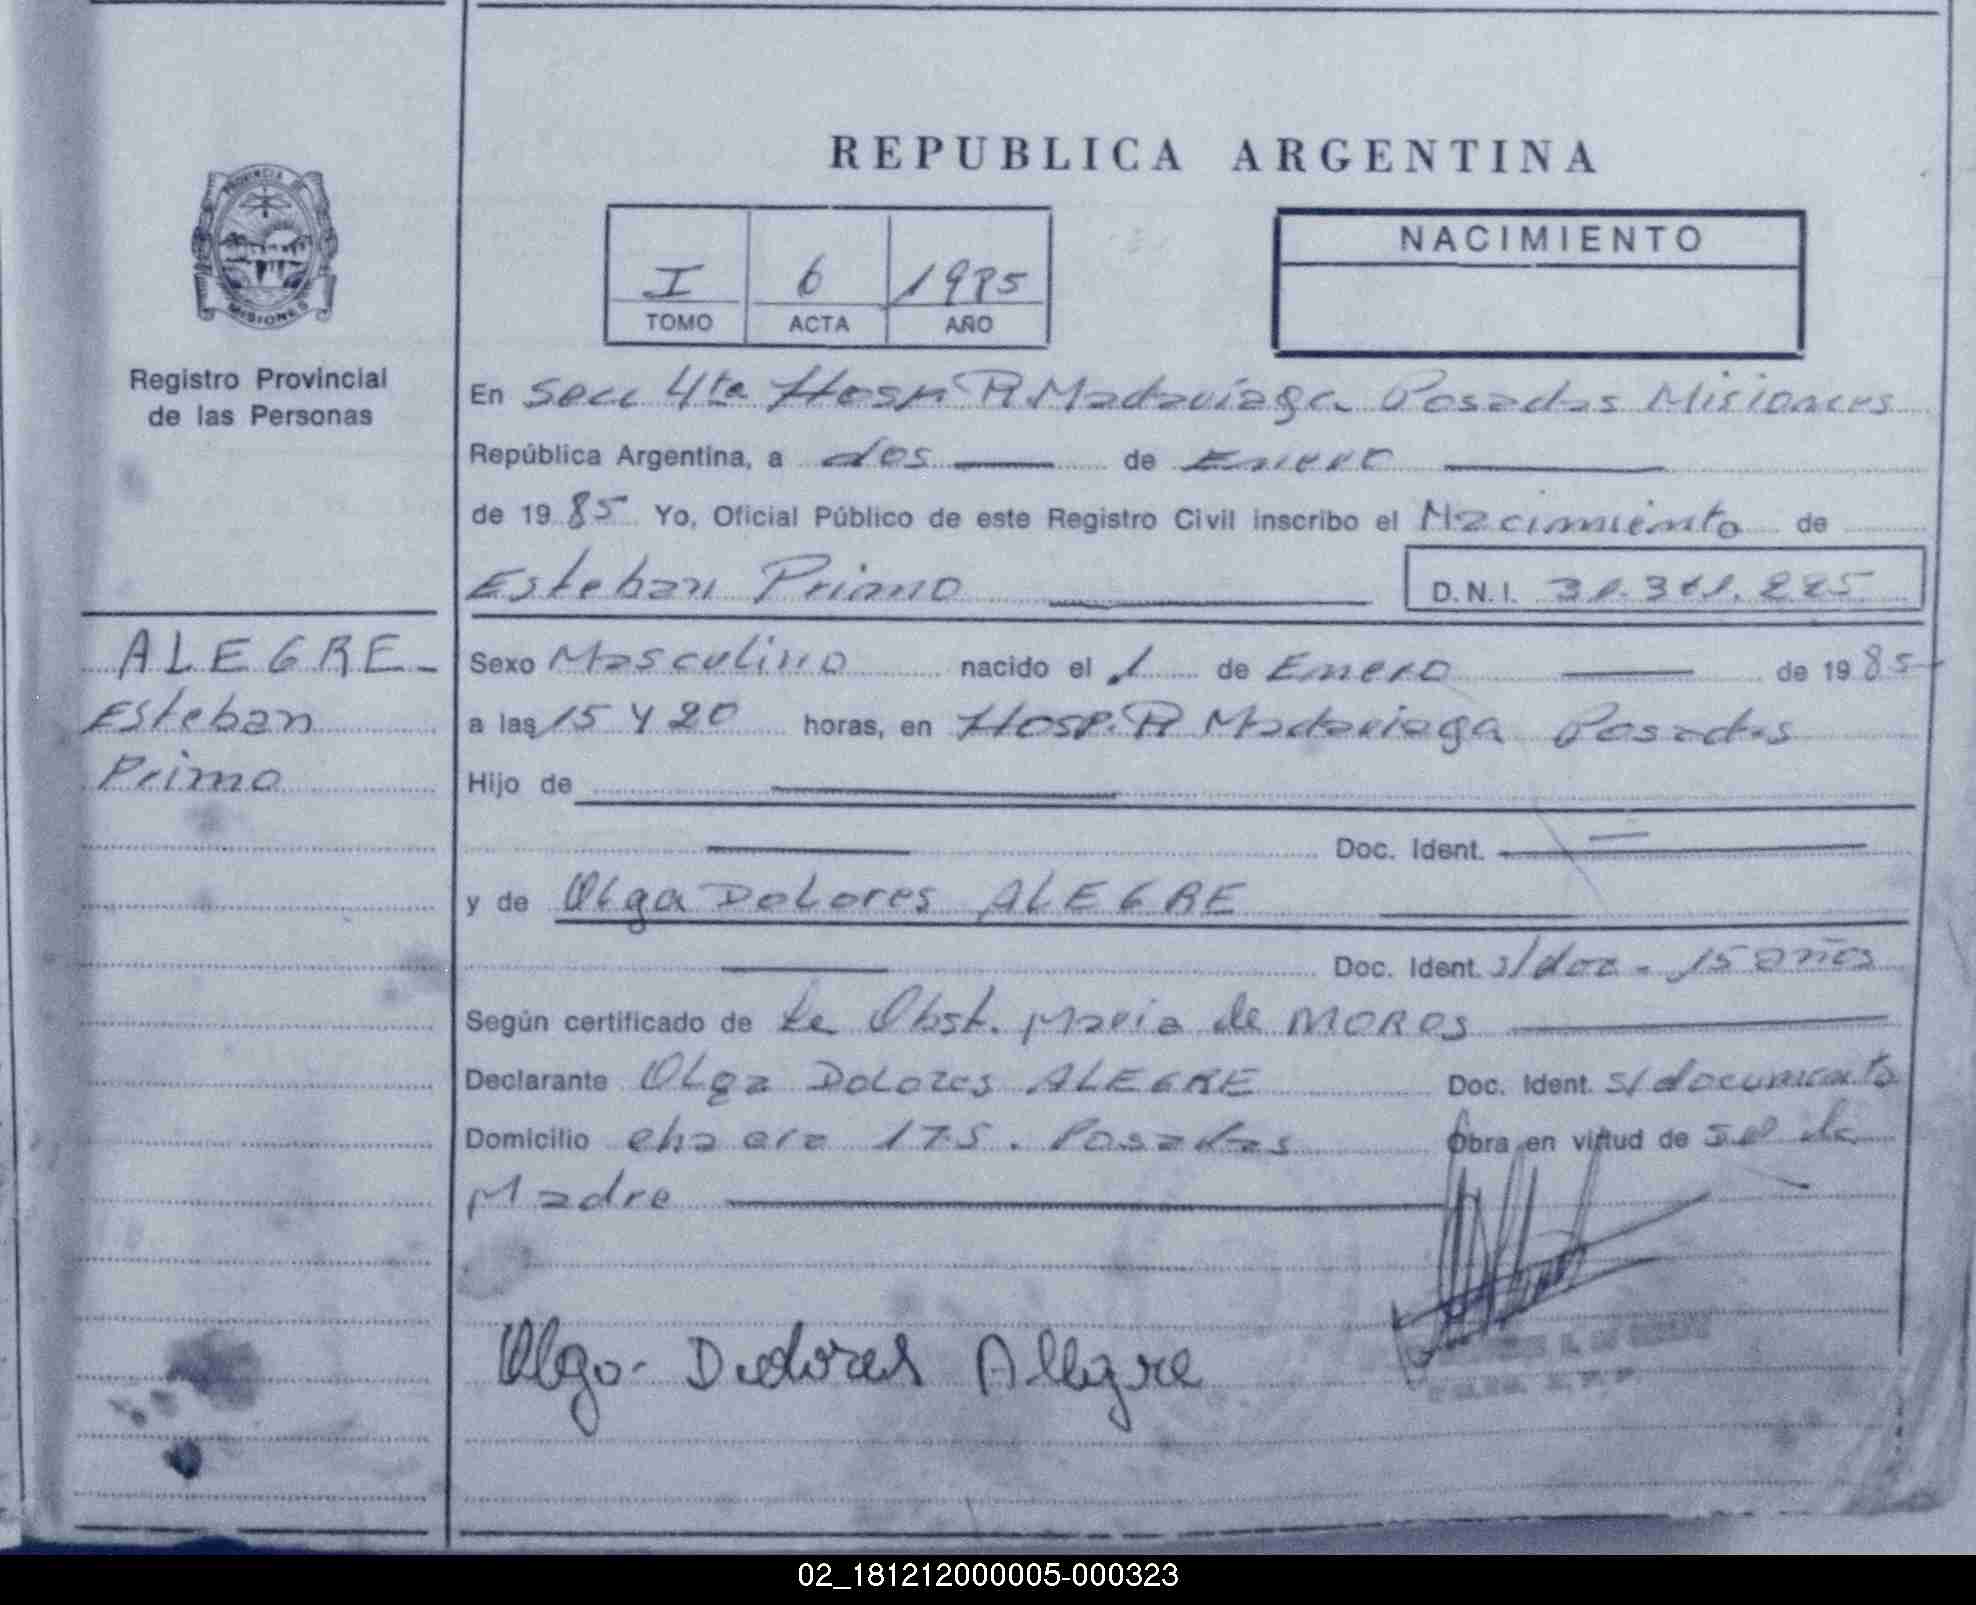 REPUBLICA ARGENTINA
PROVINCIA DE
MISIONES
Registro Provincial
de las Personas
I 6 1985
TOMO ACTA AÑO
NACIMIENTO
En Secc 4ta Hosp R. Madariaga Posadas Misiones
República Argentina, a dos de Enero
de 1985 Yo, Oficial Público de este Registro Civil inscribo el Nacimiento de
Esteban Primo
D.N.I.
ALEGRE
Esteban
Primo
Sexo Masculino nacido el 1 de Enero de 1985
a las 15 y 20 horas, en Hosp. R Madariaga Posadas
Hijo de
Doc. Ident.
y de Olga Dolores ALEGRE
Doc. Ident. s/doc - 15 años
Según certificado de la Obst. Maria de MOROS
Declarante Olga Dolores ALEGRE Doc. Ident. s/documento
Domicilio chacra 175. Posadas Obra en virtud de ser la
Madre
Olga Dolores Allegre
02_181212000005-000323